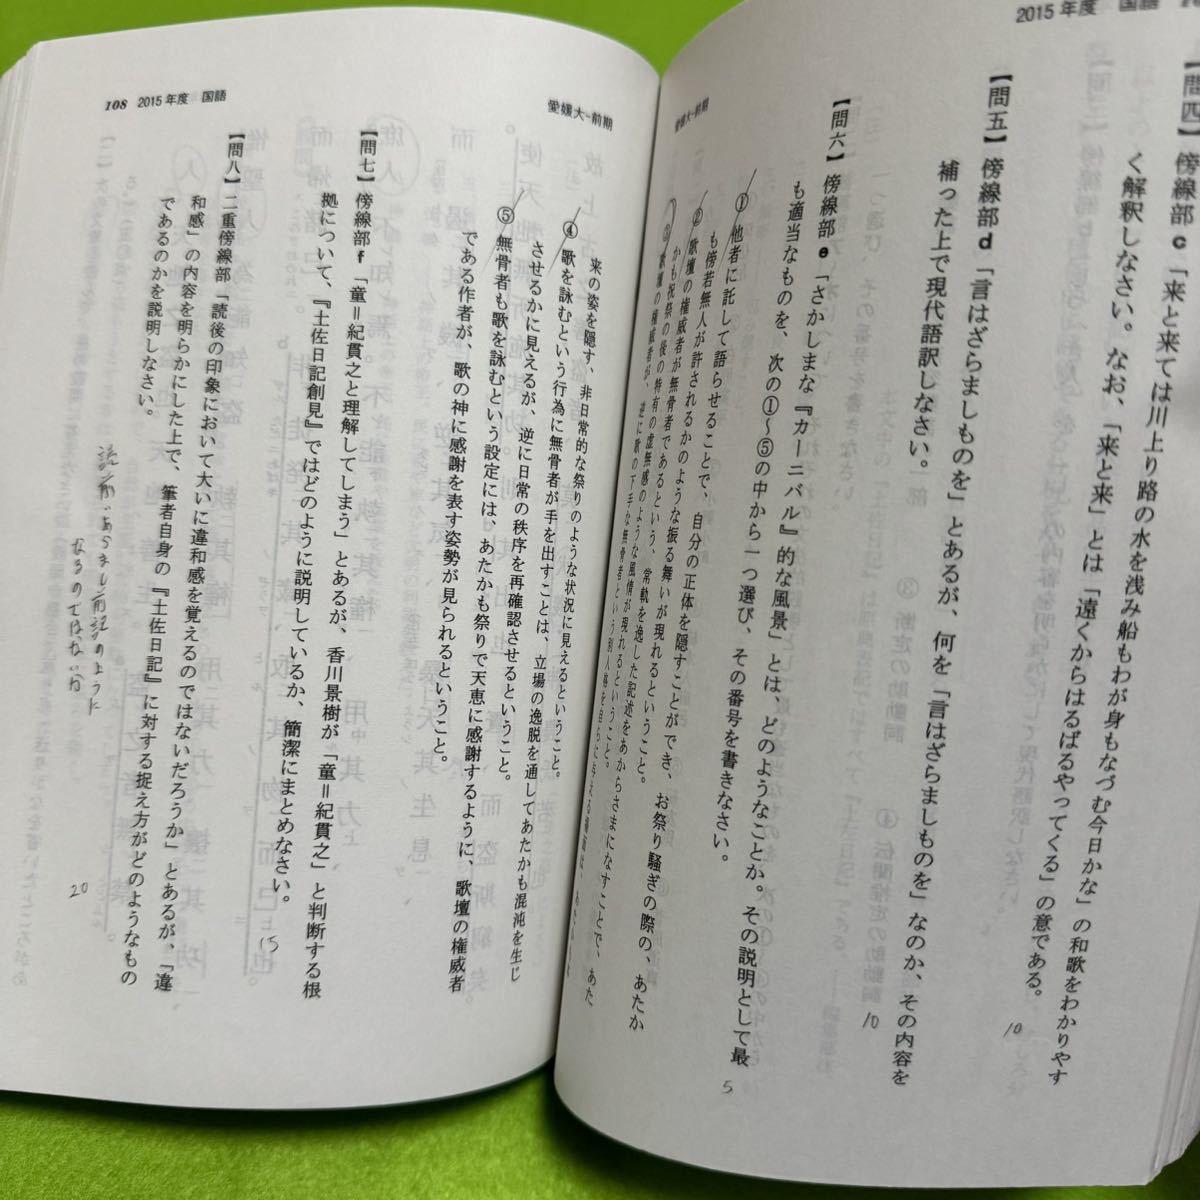 2015年度　国語
【問四】傍線部c「来と来ては川上り路の水を浅み船もわが身もなづむ今日かな」の和歌をわかりやす
く解釈しなさい。なお、「来と来」とは「遠くからはるばるやってくる」の意である。
10
【問五】傍線部d「言はざらましものを」とあるが、何を「言はざらましものを」なのか、その内容を
補った上で現代語訳しなさい。
10
【問六】傍線部e「さかしまな『カーニバル』的な風景」とは、どのようなことか。その説明として最
も適当なものを、次の①〜⑤の中から一つ選び、その番号を書きなさい。
5
①　他者に託して語らせることで、自分の正体を隠すことができ、お祭り騒ぎの際の、あたか
も傍若無人が許されるかのような振る舞いが現れるということ。
②　歌壇の権威者が無骨者であるという、常軌を逸した記述をあからさまになすことで、あた
かも祝祭の後の特有の虚無感のような風情が現れるということ。
③　歌壇の権威者が、逆に歌の下手な無骨者という別人格を自らに与える
愛媛大-前期
108　2015年度　国語
愛媛大-前期
来の姿を隠す、非日常的な祭りのような状況に見えるということ。
④　歌を詠むという行為に無骨者が手を出すことは、立場の逸脱を通してあたかも混沌を生じ
させるかに見えるが、逆に日常の秩序を再確認させるということ。
⑤　無骨者も歌を詠むという設定には、あたかも祭りで天恵に感謝するように、歌壇の権威者
である作者が、歌の神に感謝を表す姿勢が見られるということ。
【問七】傍線部f「童＝紀貫之と理解してしまう」とあるが、香川景樹が「童＝紀貫之」と判断する根
拠について、『土佐日記創見』ではどのように説明しているか、簡潔にまとめなさい。
15
【問八】二重傍線部「読後の印象において大いに違和感を覚えるのではないだろうか」とあるが、「違
和感」の内容を明らかにした上で、筆者自身の『土佐日記』に対する捉え方がどのようなもの
であるのかを説明しなさい。
20
なるのではないか